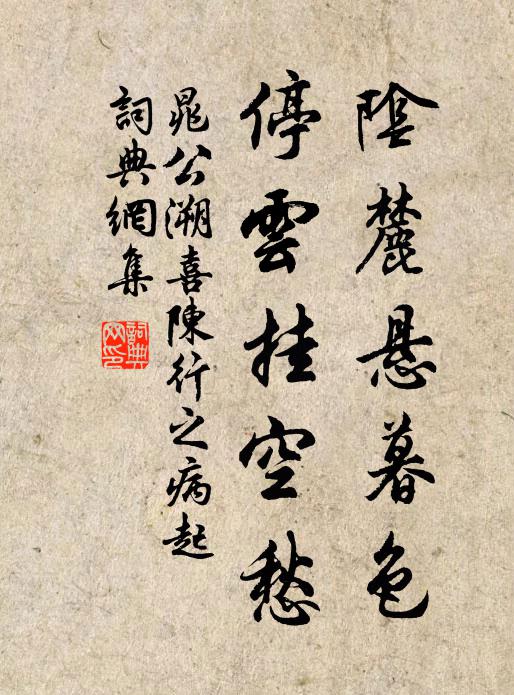 陰麓悬暮色
停雲挂空愁
晁公溯喜陳行之病起
詞典網集
詞典网印